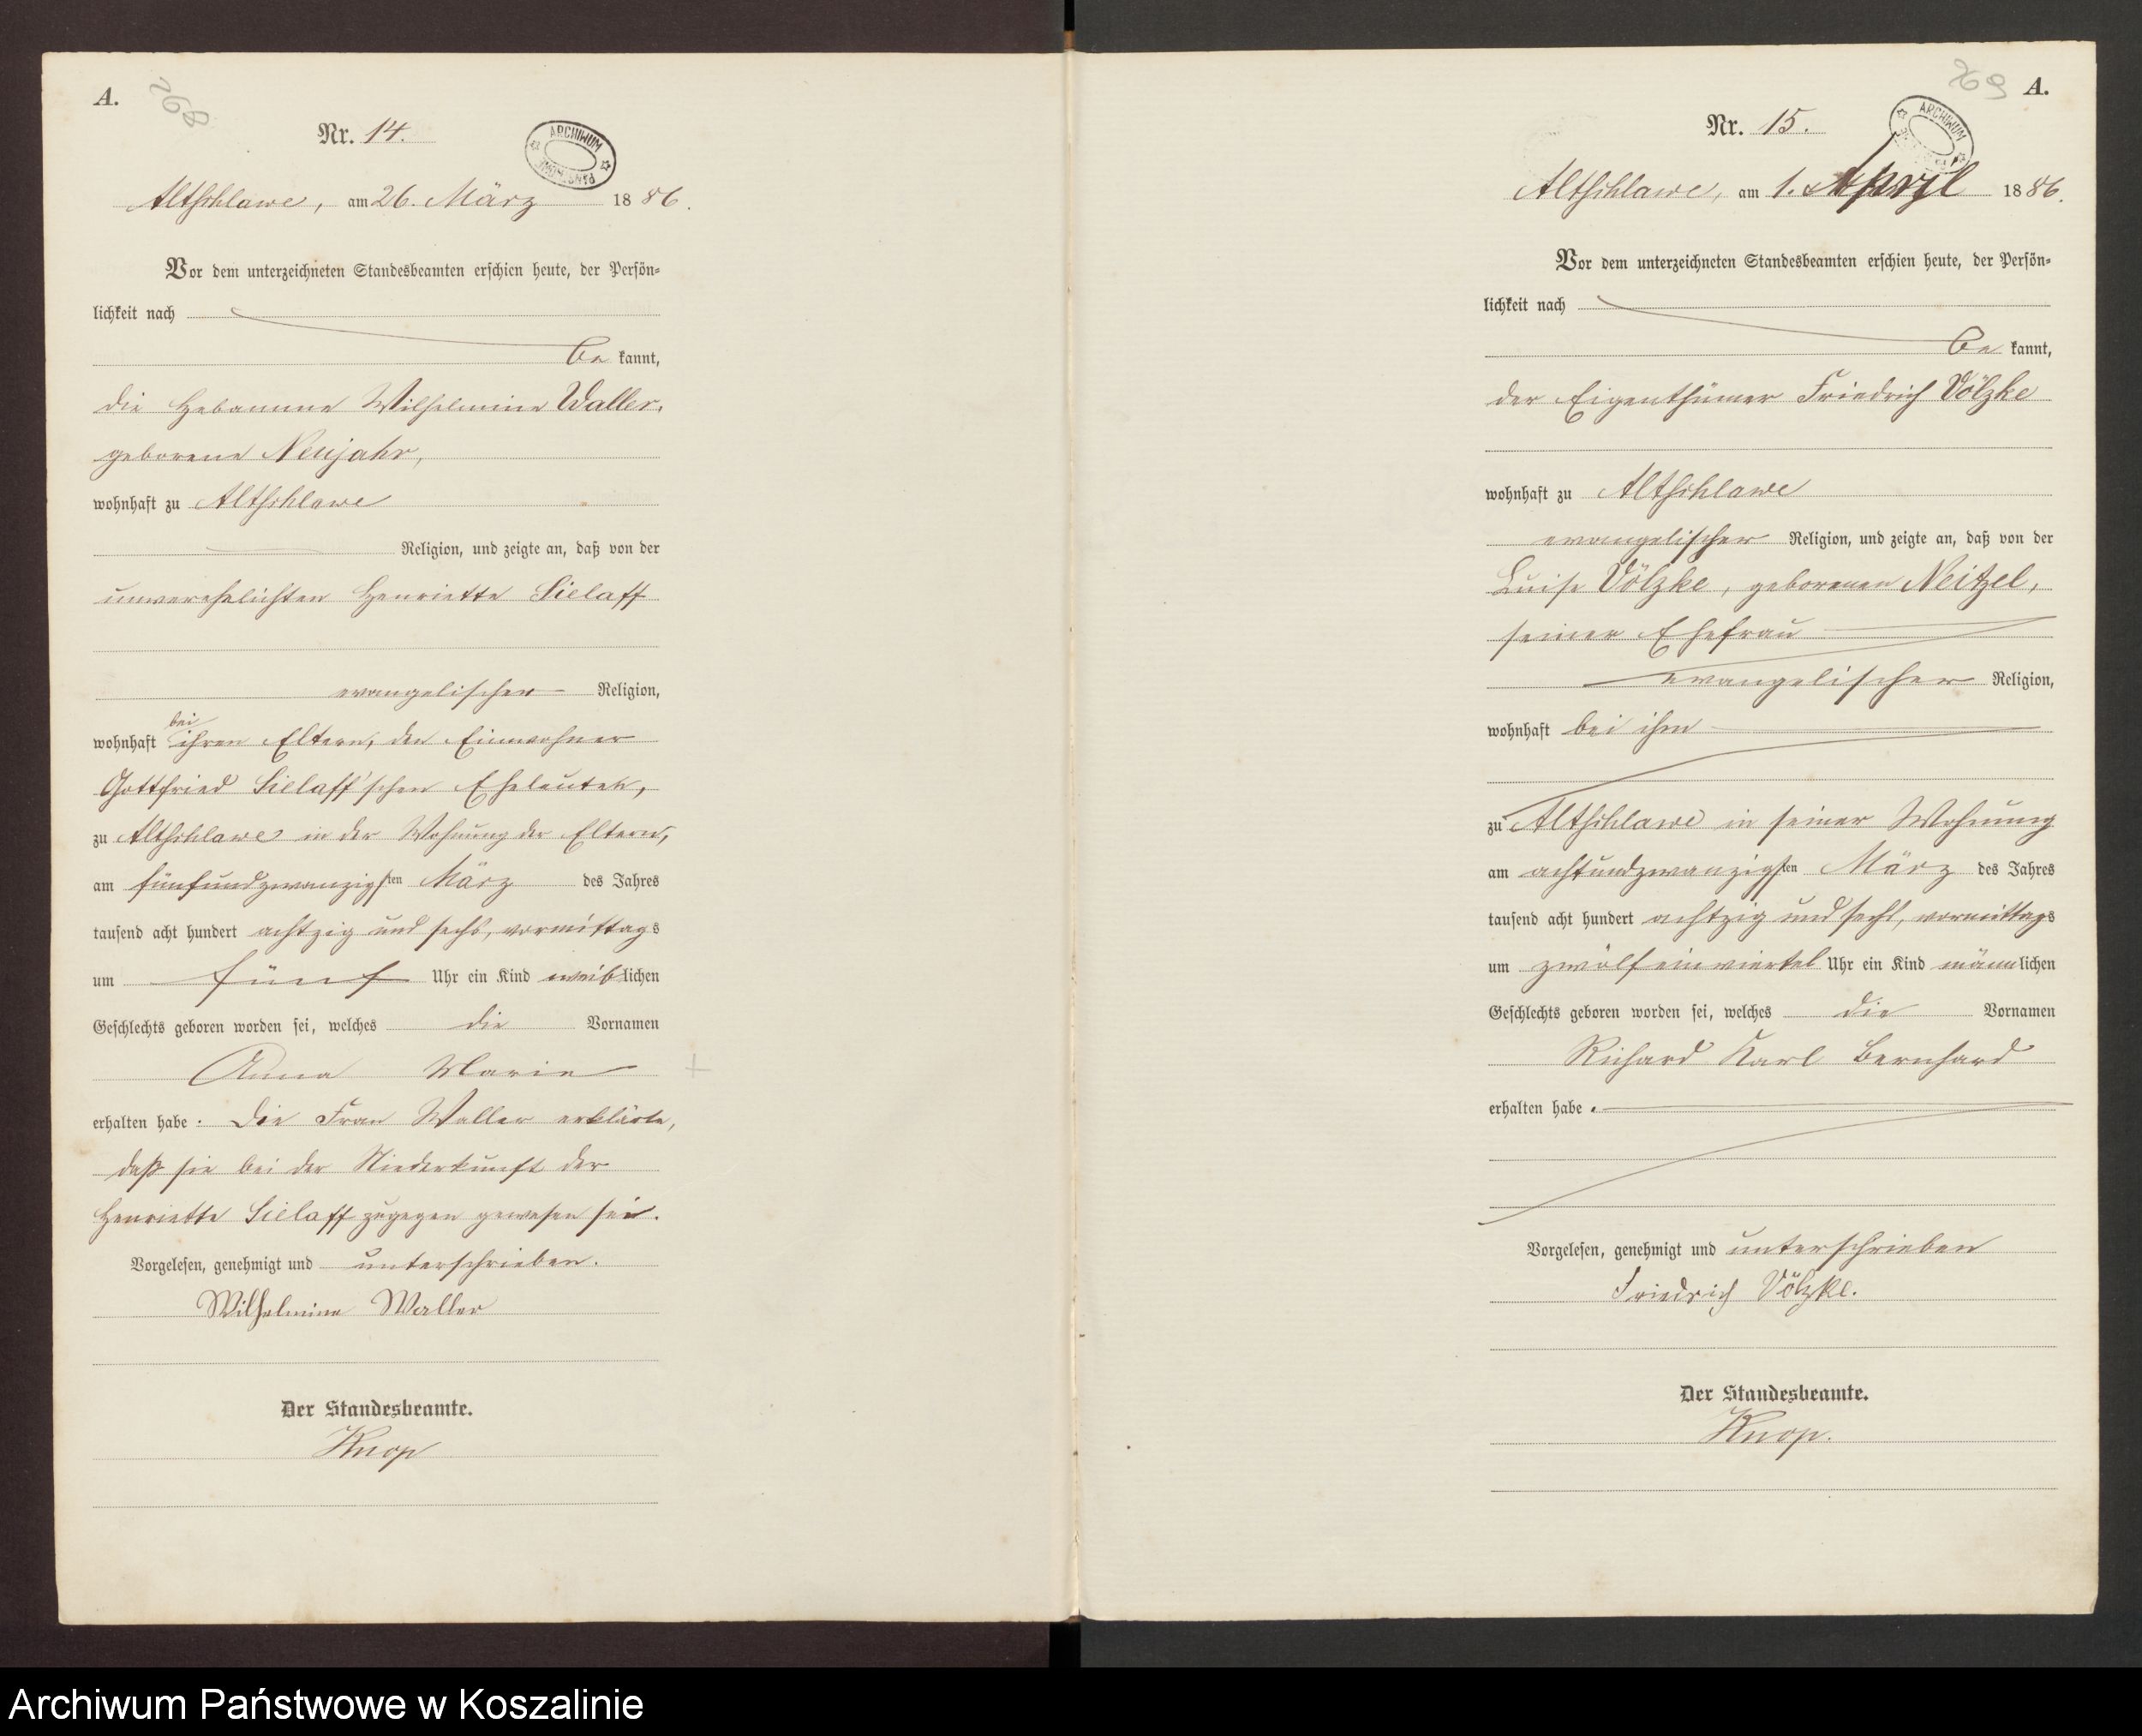 A.
268
Nr. 14.
ARCHIWUM PAŃSTWOWE
Altschlawe, am 26. März 1886.
Vor dem unterzeichneten Standesbeamten erschien heute, der Persön-
lichkeit nach
be kannt,
die Hebamme Wilhelmine Waller,
geborene Neujahr,
wohnhaft zu Altschlawe
Religion, und zeigte an, daß von der
unverehelichten Henriette Sielaff
evangelischer Religion,
bei
wohnhaft ihren Eltern, den Einwohner
Gottfried Sielaff'schen Eheleuten,
zu Altschlawe in der Wohnung der Eltern,
am fünfundzwanzigsten März des Jahres
tausend acht hundert achtzig und sechs, vormittags
um fünf Uhr ein Kind weiblichen
Geschlechts geboren worden sei, welches die Vornamen
Anna Marie
erhalten habe. Die Frau Waller erklärte,
daß sie bei der Niederkunft der
Henriette Sielaff zugegen gewesen sei.
Vorgelesen, genehmigt und unterschrieben.
Wilhelmine Waller
Der Standesbeamte.
Knop
269
A.
Nr. 15.
ARCHIWUM
Altschlawe, am 1. April 1886.
Vor dem unterzeichneten Standesbeamten erschien heute, der Persön-
lichkeit nach
be kannt,
der Eigenthümer Friedrich Völzke
wohnhaft zu Altschlawe
evangelischer Religion, und zeigte an, daß von der
Luise Völzke, geborenen Neitzel,
seiner Ehefrau
evangelischer Religion,
wohnhaft bei ihm
zu Altschlawe in seiner Wohnung
am achtundzwanzigsten März des Jahres
tausend acht hundert achtzig und sechs, vormittags
um zwölf ein viertel Uhr ein Kind männlichen
Geschlechts geboren worden sei, welches die Vornamen
Richard Karl Bernhard
erhalten habe.
Vorgelesen, genehmigt und unterschrieben
Friedrich Völzke.
Der Standesbeamte.
Knop.
Archiwum Państwowe w Koszalinie